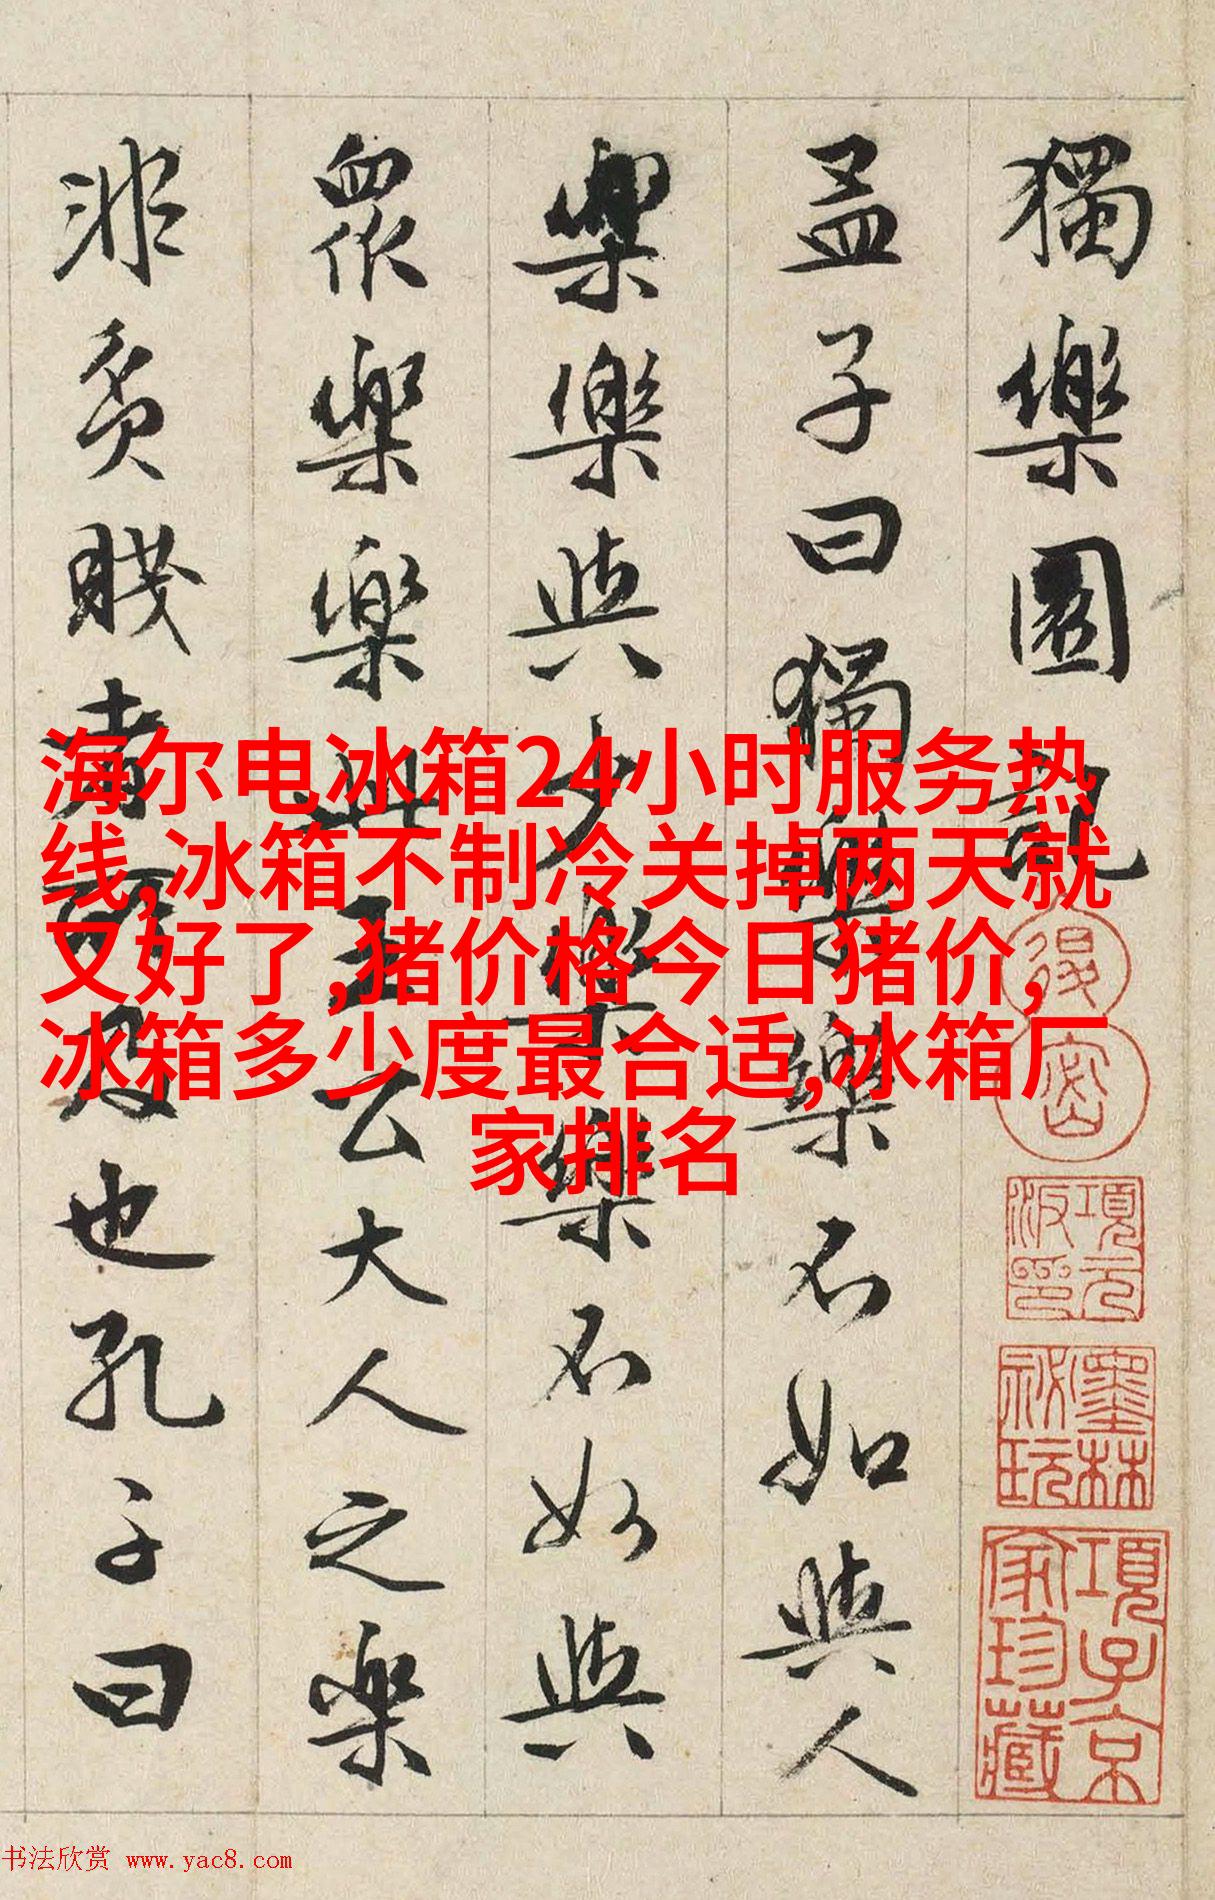 獨樂園記
孟子曰獨樂樂不如與人
樂樂與少樂樂不如與
眾樂樂此王公大人之樂
非貧賤者所及也孔子曰
海尔电冰箱24小时服务热
线,冰箱不制冷关掉两天就
又好了,猪价格今日猪价,
冰箱多少度最合适,冰箱厂
家排名
項元汴印
墨林祕玩
項子京家珍藏
书法欣赏 www.yac8.com